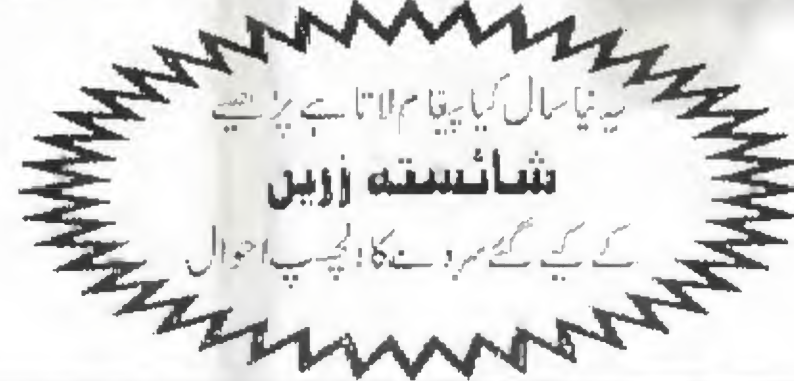 یہ نیا سال کیا پیغام لاتا ہے پڑھیے
شائستہ زریں
کے کیے گئے سروے کا دلچسپ احوال